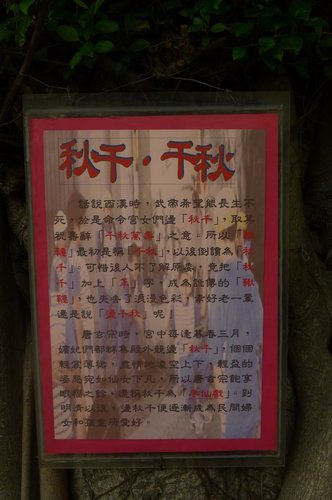 秋千・千秋
話說西漢時，武帝希望能長生不
死，於是命令宮女們盪「秋千」，取其
祝壽辭「千秋萬壽」之意。所以「鞦
韆」最初是稱「千秋」，以後倒讀為「秋
千」。可惜後人不了解原委，竟把「秋
千」加上「革」字，成為訛傳的「鞦
韆」，也失去了浪漫色彩，幸好老一輩
還是說「盪千秋」呢！
唐玄宗時，宮中每逢暮春三月，
嬪妃們都群集殿外競盪「秋千」，個個
輕裳薄裙，盡情地凌空上下，輕盈的
姿態宛如仙女下凡，所以唐玄宗飽享
眼福之餘，還稱秋千為「半仙戲」。到
明清以後，盪秋千便逐漸成為民間婦
女和孩童所愛好。